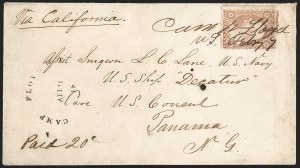 Via California.
Camp Floyd
U.T.
Asst Surgeon L. C. Lane, U.S. Navy
U.S. Ship "Decatur"
Care U.S. Consul
Panama
N. G.
CAMP
Paid 20c